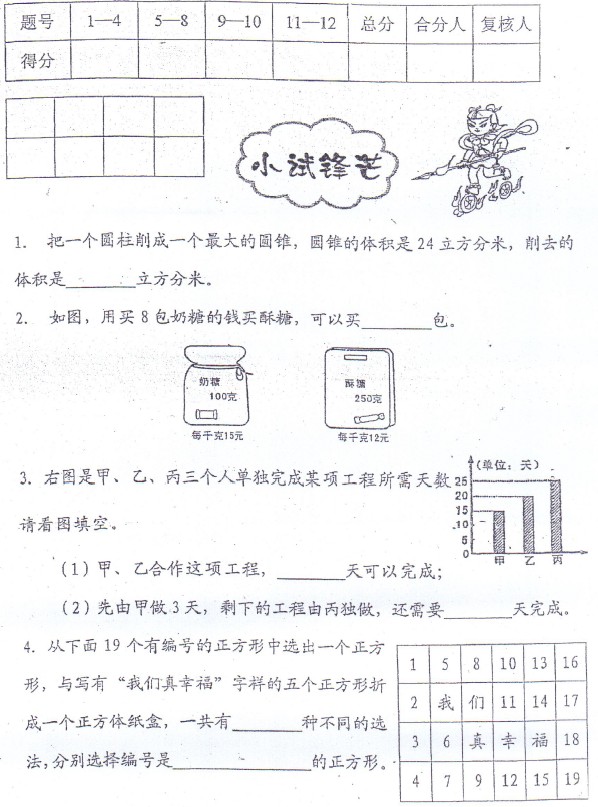 题号 1—4 5—8 9—10 11—12 总分 合分人 复核人
得分
小试锋芒
1. 把一个圆柱削成一个最大的圆锥，圆锥的体积是24立方分米，削去的
体积是________立方分米。
2. 如图，用买8包奶糖的钱买酥糖，可以买________包。
奶糖 酥糖
100克 250克
每千克15元 每千克12元
3. 右图是甲、乙、丙三个人单独完成某项工程所需天数
请看图填空。
(单位：天)
25
20
15
10
5
0
甲 乙 丙
(1) 甲、乙合作这项工程，________天可以完成；
(2) 先由甲做3天，剩下的工程由丙独做，还需要________天完成。
4. 从下面19个有编号的正方形中选出一个正方
形，与写有“我们真幸福”字样的五个正方形折
成一个正方体纸盒，一共有________种不同的选
法，分别选择编号是________________的正方形。
1 5 8 10 13 16
2 我 们 11 14 17
3 6 真 幸 福 18
4 7 9 12 15 19